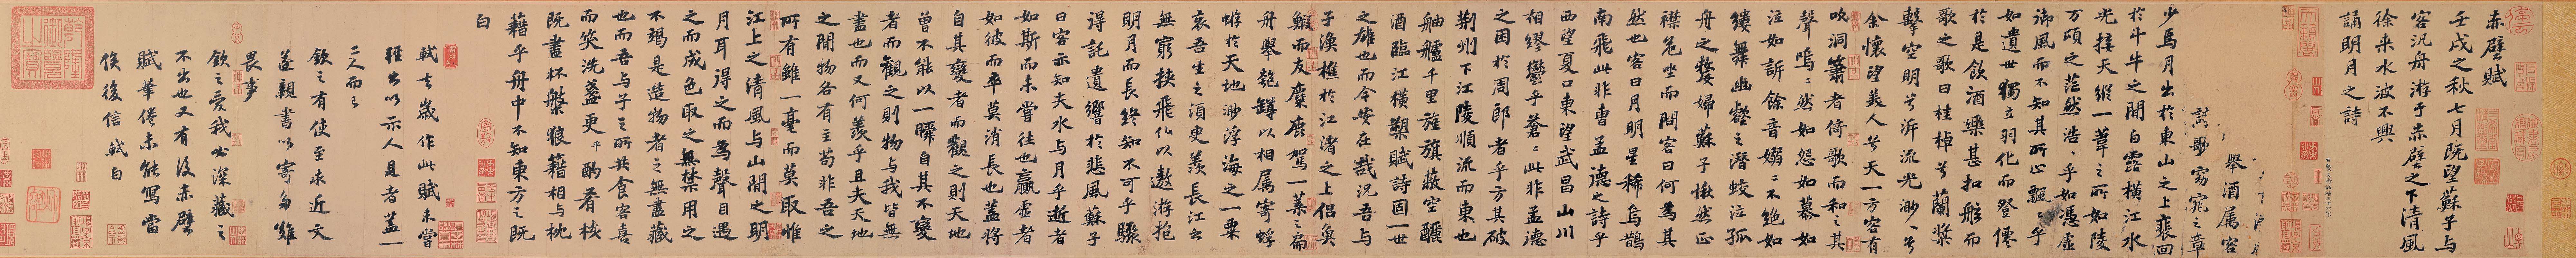 赤壁賦
壬戌之秋七月既望蘇子与
客汎舟游于赤壁之下清風
徐来水波不興
誦明月之詩
舉酒属客
歌窈窕之章
少焉月出於東山之上裴回
於斗牛之間白露橫江水
光接天縱一葦之所如陵
万頃之茫然浩〻乎如馮虛
御風而不知其所止飄〻乎
如遺世獨立羽化而登僊
於是飲酒樂甚扣舷而
歌之歌曰桂棹兮蘭槳
擊空明兮泝流光渺〻兮
余懷望美人兮天一方客有
吹洞簫者倚歌而和之其
聲嗚〻然如怨如慕如
泣如訴餘音嫋〻不絕如
縷舞幽壑之潛蛟泣孤
舟之嫠婦蘇子愀然正
襟危坐而問客曰何為其
然也客曰月明星稀烏鵲
南飛此非曹孟德之詩乎
西望夏口東望武昌山川
相繆鬱乎蒼〻此非孟德
之困於周郎者乎方其破
荊州下江陵順流而東也
舳艫千里旌旗蔽空釃
酒臨江橫槊賦詩固一世
之雄也而今安在哉況吾与
子漁樵於江渚之上侶魚
鰕而友麋鹿駕一葉之扁
舟舉匏罇以相属寄蜉
蝣於天地渺浮海之一粟
哀吾生之須臾羨長江之
無窮挾飛仙以遨游抱
明月而長終知不可乎驟
得託遺響於悲風蘇子
曰客亦知夫水与月乎逝者
如斯而未嘗往也贏虛者
如彼而卒莫消長也蓋將
自其變者而觀之則天地
曾不能以一瞬自其不變
者而觀之則物与我皆無
盡也而又何羨乎且夫天地
之間物各有主苟非吾之
所有雖一毫而莫取惟
江上之清風与山間之明
月耳得之而為聲目遇
之而成色取之無禁用之
不竭是造物者之無盡藏
也而吾与子之所共食客喜
而笑洗盞更酌肴核
既盡杯盤狼籍相与枕
藉乎舟中不知東方之既
白
軾去歲作此賦未嘗
輕出以示人見者蓋一
二人而已
欽之有使至求近文
遂親書以寄多難
畏事
欽之愛我必深藏之
不出也又有後赤壁
賦筆倦未能寫當
俟後信軾白